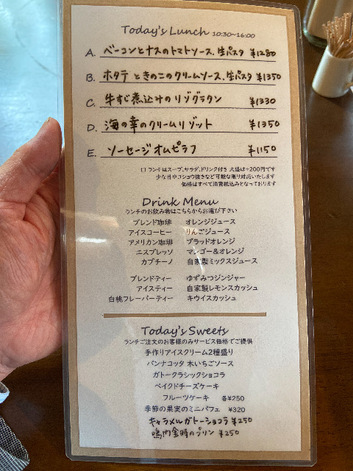 Today's Lunch 10:30~16:00
A. ベーコンとナスのトマトソース、生パスタ ¥1280
B. ホタテときのこのクリームソース、生パスタ ¥1350
C. 牛すじ煮込みのリゾグラタン ¥1330
D. 海の幸のクリームリゾット ¥1350
E. ソーセージオムピラフ ¥1150
ランチはスープ、サラダ、ドリンク付き 大盛は+200円です
価格はすべて消費税込みとなっております
Drink Menu
ランチのお飲み物はこちらからお選び下さい
ブレンド珈琲 オレンジジュース
アイスコーヒー りんごジュース
アメリカン珈琲 ブラッドオレンジ
エスプレッソ マンゴー&オレンジ
カプチーノ 自家製ミックスジュース
ブレンドティー ゆずみつジンジャー
アイスティー 自家製レモンスカッシュ
白桃フレーバーティー キウイスカッシュ
Today's Sweets
ランチご注文のお客様のみサービス価格でご提供
手作りアイスクリーム2種盛り
パンナコッタ 木いちごソース
ガトークラシックショコラ
ベイクドチーズケーキ
フルーツケーキ 各¥250
季節の果実のミニパフェ ¥320
キャラメルガトーショコラ ¥250
鳴門金時のプリン ¥250